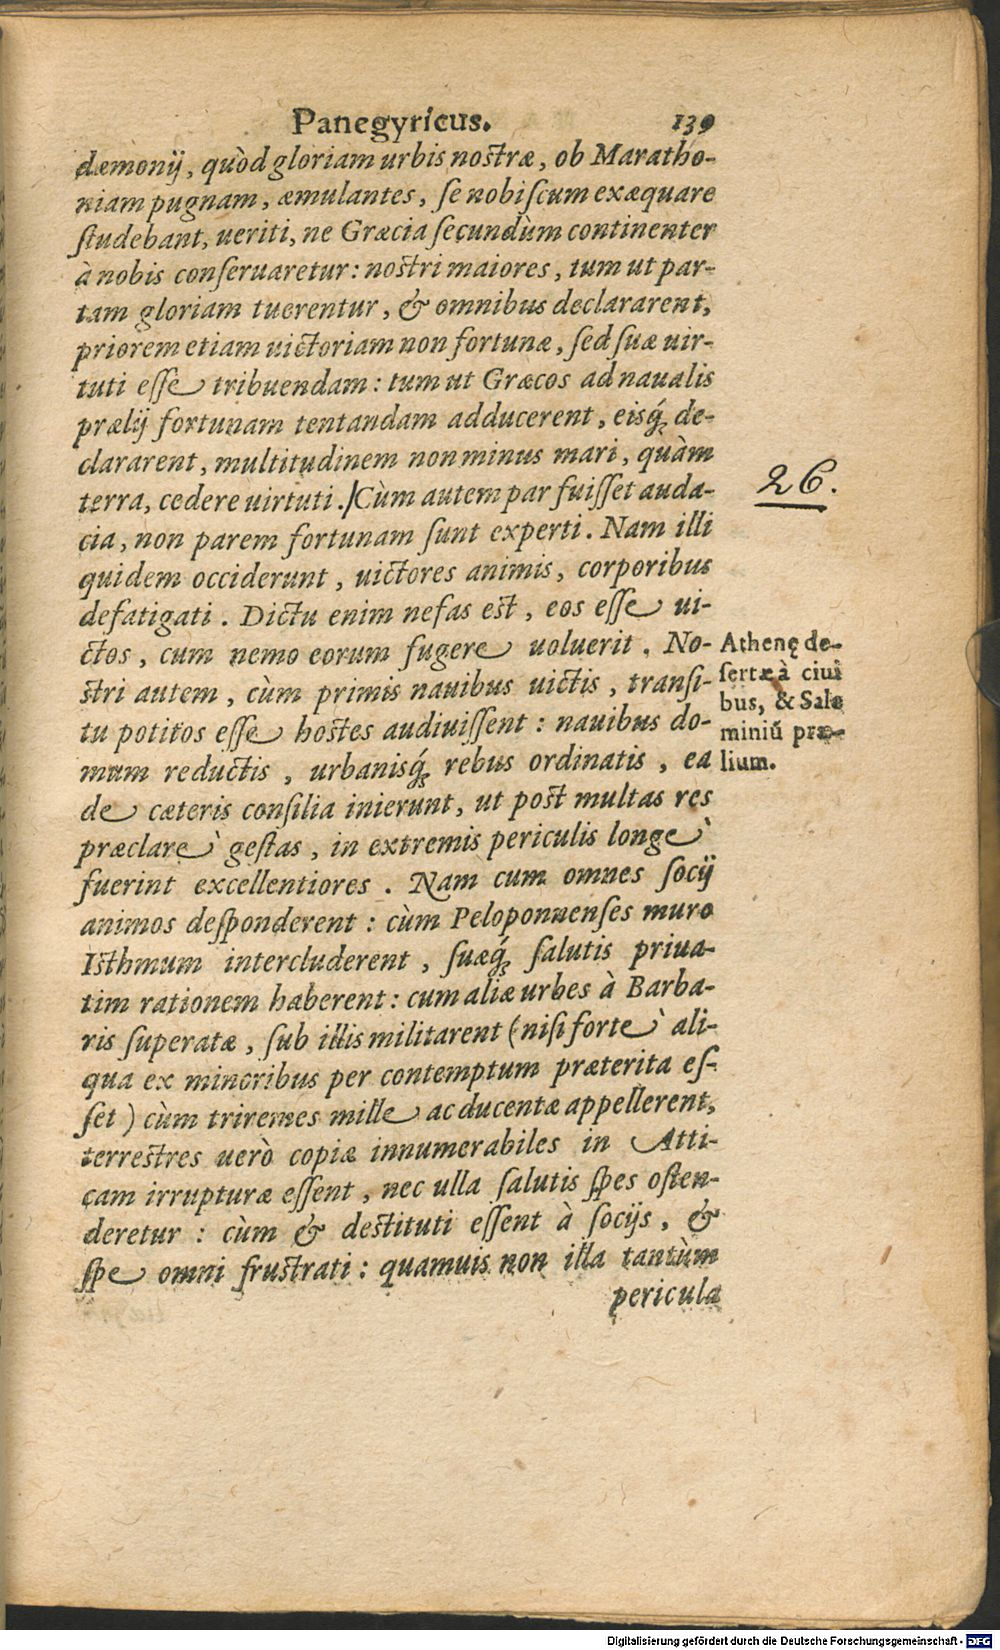 Panegyricus. 139
dæmonij, quòd gloriam urbis nostræ, ob Maratho-
niam pugnam, æmulantes, se nobiscum exæquare
studebant, ueriti, ne Græcia secundùm continenter
à nobis conseruaretur: nostri maiores, tum ut par-
tam gloriam tuerentur, & omnibus declararent,
priorem etiam uictoriam non fortunæ, sed suæ uir-
tuti esse tribuendam: tum ut Græcos ad naualis
prælij fortunam tentandam adducerent, eisq́; de-
clararent, multitudinem non minus mari, quàm
terra, cedere uirtuti./Cùm autem par fuisset auda-
cia, non parem fortunam sunt experti. Nam illi
quidem occiderunt, uictores animis, corporibus
defatigati. Dictu enim nefas est, eos esse ui-
ctos, cum nemo eorum fugere uoluerit. No-
stri autem, cùm primis nauibus uictis, transi-
tu potitos esse hostes audiuissent: nauibus do-
mum reductis, urbanisq́; rebus ordinatis, ea
de cæteris consilia inierunt, ut post multas res
præclarè gestas, in extremis periculis longè
fuerint excellentiores. Nam cum omnes socij
animos desponderent: cùm Peloponnenses muro
Isthmum intercluderent, suæq́; salutis priua-
tim rationem haberent: cum aliæ urbes à Barba-
ris superatæ, sub illis militarent (nisi fortè ali-
qua ex minoribus per contemptum præterita es-
set) cùm triremes mille ac ducentæ appellerent,
terrestres uerò copiæ innumerabiles in Atti-
cam irrupturæ essent, nec ulla salutis spes osten-
deretur: cùm & destituti essent à socijs, &
spe omni frustrati: quamuis non illa tantùm
pericula
26.
Athenę de-
sertæ à ciui
bus, & Sala
miniū præ-
lium.
Digitalisierung gefördert durch die Deutsche Forschungsgemeinschaft - DFG